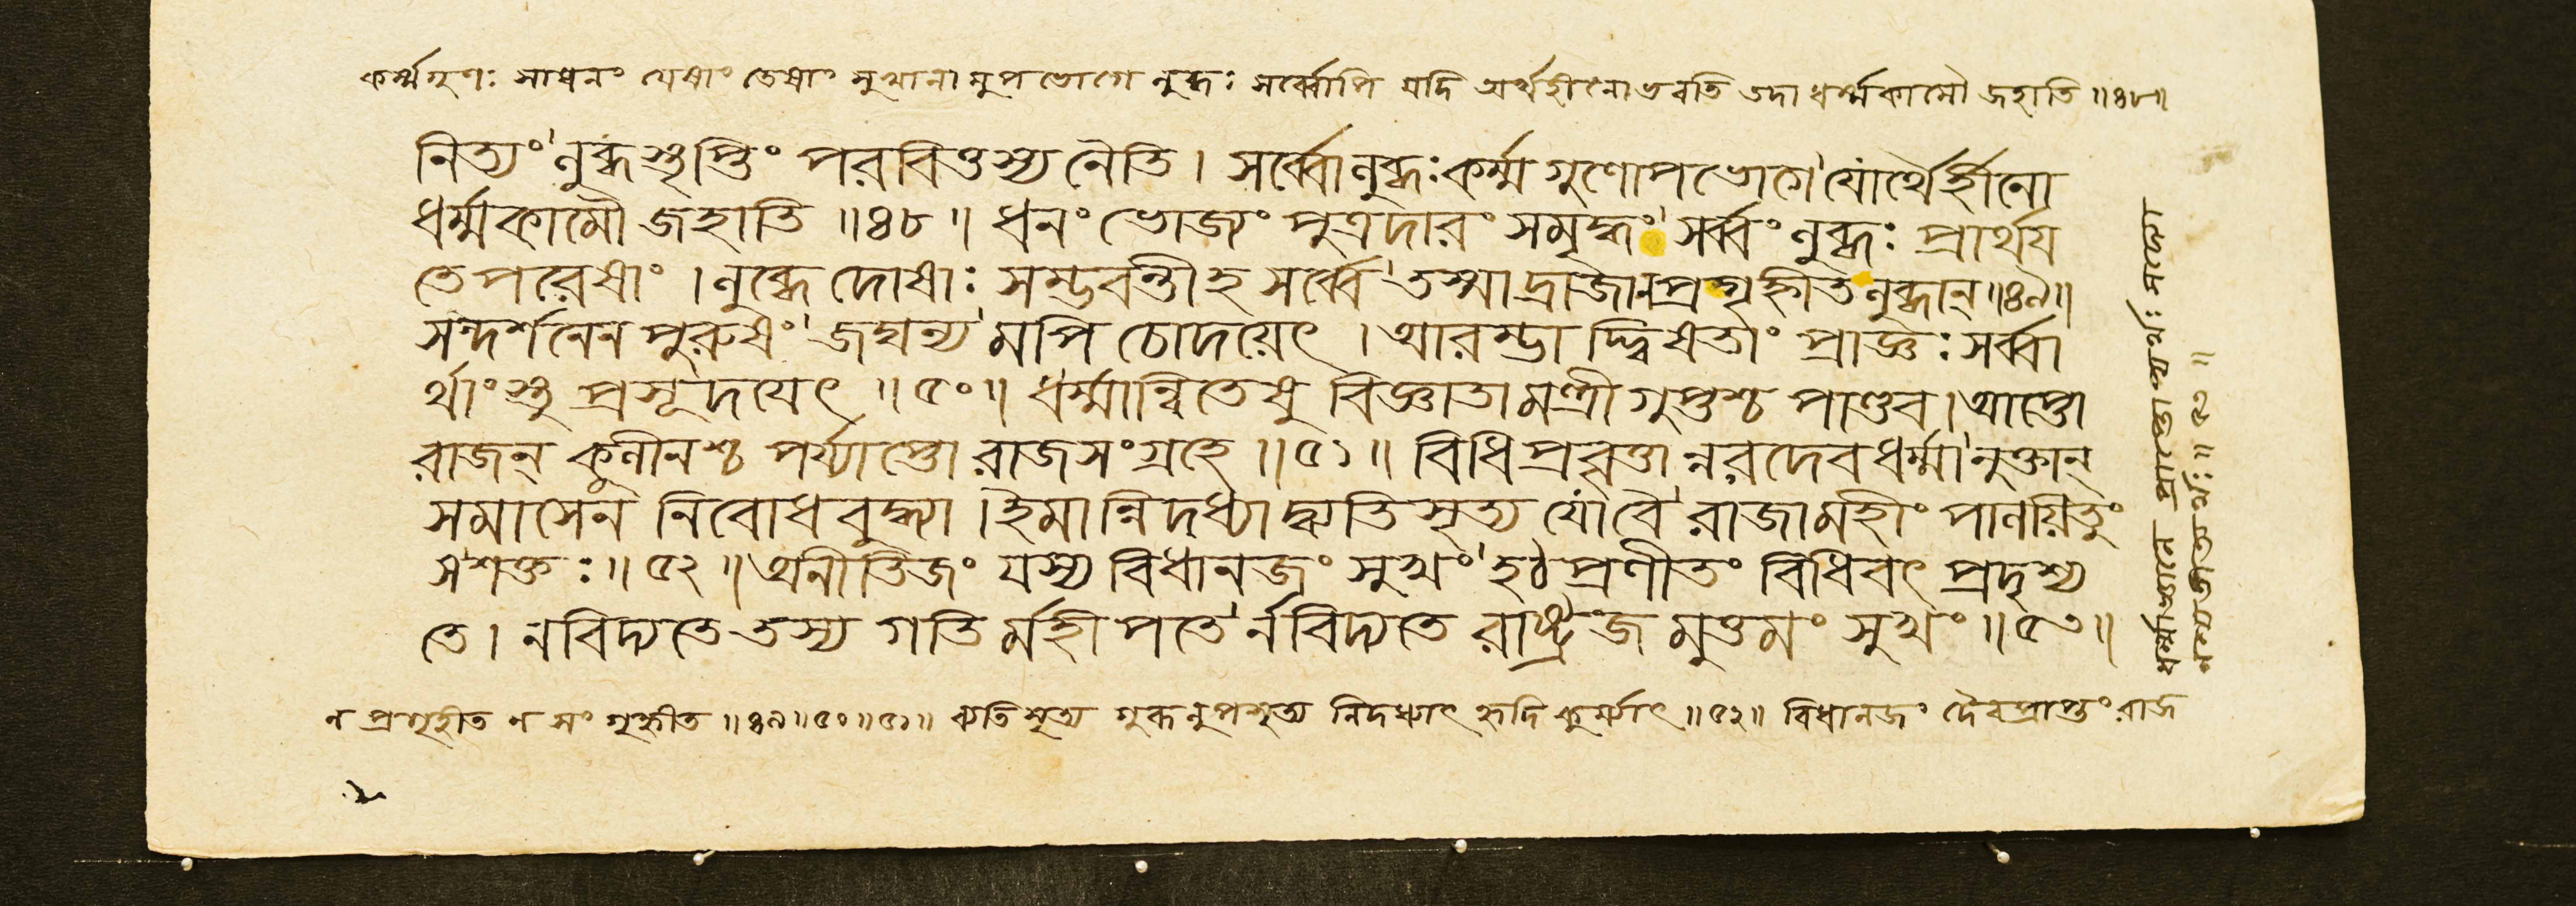 কর্ম্মগুণঃ সাধনং যেষাং তেষাং সুখানামুপভোগে লুব্ধঃ সর্ব্বোপি যদি অর্থহীনোভবতি তদা ধর্ম্মকামৌ জহাতি ॥৪৮॥
নিত্যং লুব্ধস্তৃপ্তিং পরবিত্তস্য নৈতি। সর্ব্বোলুব্ধঃ কর্ম্মগুণোপভোগে যোর্থৈর্হীনো
ধর্ম্মকামৌ জহাতি ॥৪৮॥ ধনং ভোজ্যং পুত্রদারং সমৃদ্ধং সর্ব্বং লুব্ধঃ প্রার্থয
তে পরেষাং । লুব্ধে দোষাঃ সম্ভবন্তীহ সর্ব্বে তস্মাদ্রাজানপ্রগৃহ্নীত লুব্ধান্ ॥৪৯॥
সন্দর্শনেন পুরুষং জঘন্যমপি চোদয়েৎ । আরম্ভা দ্দ্বিষতাং প্রাজ্ঞঃ সর্ব্বা
র্থাংস্তু প্রসূদযেৎ ॥৫০॥ ধর্ম্মান্বিতেষু বিজ্ঞাতা মন্ত্রী গুপ্তশ্চ পাণ্ডব। আপ্তো
রাজন্ কুলীনশ্চ পর্য্যাপ্তো রাজসংগ্রহে ॥৫১॥ বিধিপ্রবৃত্তান্নরদেবধর্ম্মানুক্তান্
সমাসেন নিবোধ বুদ্ধ্যা । ইমান্নিদধ্যাদ্ব্যতিসৃত্য যো বৈ রাজা মহীং পালয়িতুং
স শক্তঃ ॥৫২॥ অনীতিজং যস্য বিধানজং সুখং হঠপ্রণীতং বিধিবৎ প্রদৃশ্য
তে। ন বিদ্যতে তস্য গতির্মহীপতের্নবিদ্যতে রাষ্ট্রজমুত্তমং সুখং ॥৫৩॥
ন প্রগৃহীত ন সংগৃহ্নীত ॥৪৯॥৫০॥৫১॥ ব্যতিসৃত্য গুরূনুপসৃত্য নিদধ্যাৎ হৃদি কুর্য্যাৎ ॥৫২॥ বিধানজং দৈবপ্রাপ্তং রাজ